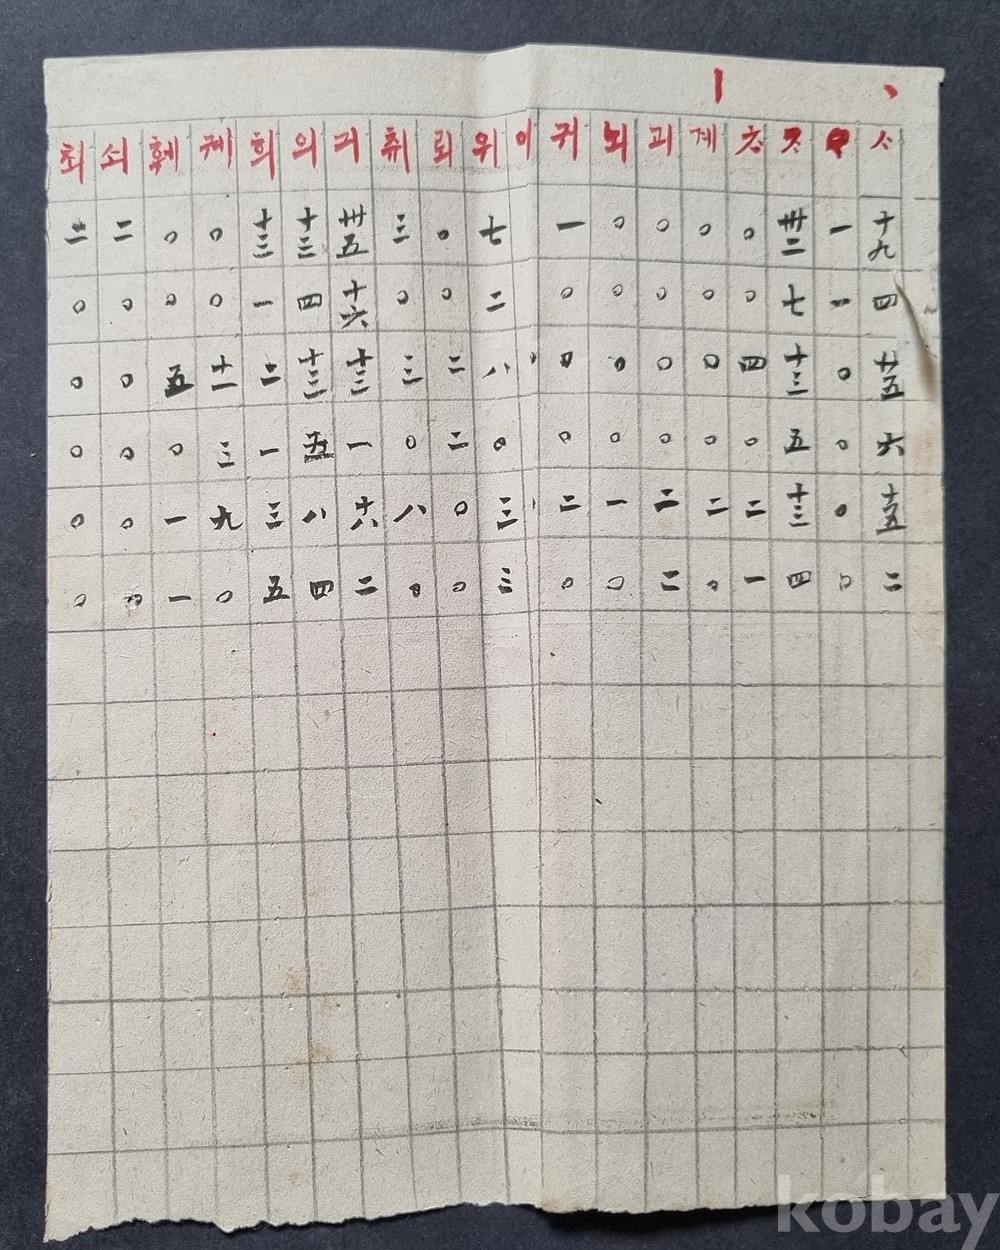 ㅅ 十九 四 廿五 六 十五 二
一 一 〇 〇 〇 〇
ㅈ 卅二 七 十三 五 十三 四
ㅊ 〇 〇 四 〇 二 一
계 〇 〇 〇 〇 二 〇
괴 〇 〇 〇 〇 二 二
뇌 〇 〇 〇 〇 一 〇
귀 一 〇 〇 〇 二 〇
이
위 七 二 八 〇 三 三
뢰 〇 〇 二 二 〇 〇
취 三 〇 三 〇 八 〇
긔 卅五 十六 十三 一 十八 二
의 十三 四 十三 五 八 四
희 十三 一 二 一 三 五
궤 〇 〇 十一 三 九 〇
훼 〇 〇 五 〇 一 一
쇠 二 〇 〇 〇 〇 〇
최 二 〇 〇 〇 〇 〇
kobay